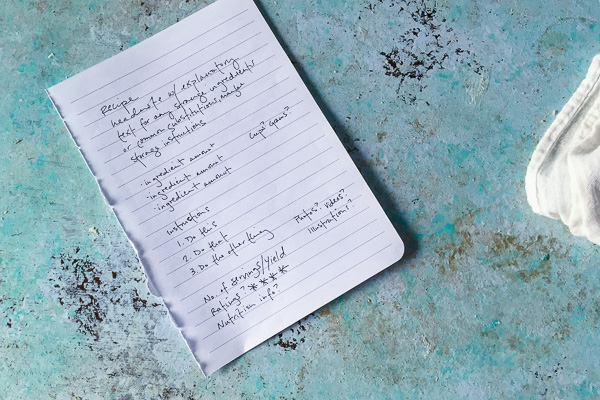 Recipe
headnote w/ explanatory
text for any strange ingredients
or common substitutions, maybe
storage instructions
Cups? Grams?
· ingredient amount
· ingredient amount
· ingredient amount
Instructions
1. Do this
2. Do that
3. Do the other thing
Photos? Videos?
Illustrations?
No. of Servings/Yield
Ratings? ****
Nutrition info?